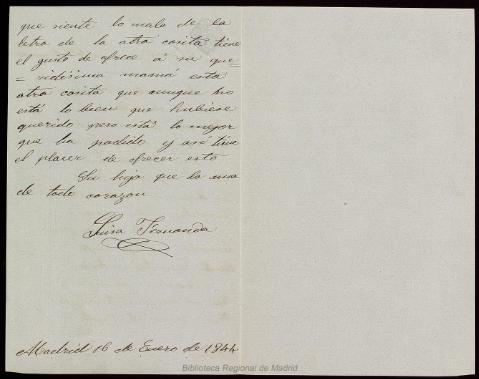 que siente lo malo de la
letra de la otra cosita tiene
el gusto de ofrece á su que=
=ridisima mamá esta
otra cosita que aunque no
está lo bien que hubiese
querido pero está lo mejor
que ha podido y asi tiene
el placer de ofrecer esto
Su hija que la ama
de todo corazon
Luisa Fernanda
Madrid 16 de Enero de 1844
Biblioteca Regional de Madrid